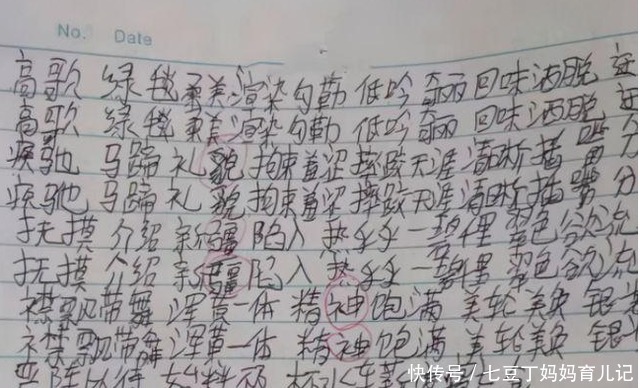 No. Date
高歌 绿毯 柔美 渲染 勾勒 低吟 奇丽 回味 洒脱
高歌 绿毯 柔美 渲染 勾勒 低吟 奇丽 回味 洒脱
疾驰 马蹄 礼貌 拘束 羞涩 摔跤 天涯 清晰 描
疾驰 马蹄 礼貌 拘束 羞涩 摔跤 天涯 清晰 描
抚摸 介绍 新疆 陷入 热乎乎 一碧 翠色欲流
抚摸 介绍 新疆 陷入 热乎乎 一碧 翠色欲流
襟飘带舞 浑黄一体 精神饱满 美轮美奂 银
襟飘带舞 浑黄一体 精神饱满 美轮美奂 银
严阵以待
快传号／七豆丁妈妈育儿记